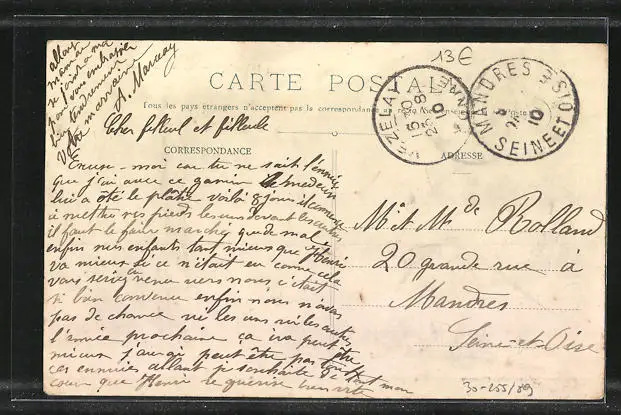 13€
CARTE POSTALE
Tous les pays étrangers n'acceptent pas la correspondance au recto
CORRESPONDANCE
ADRESSE
VEZELAY
15-10
28-8
10
MANDRES
SEINE ET OISE
10
Cher filleul et filleule
Excusez-moi car tu ne sait l'ennui
que j'ai avec ce gamin le medecin
lui a ôté le plâtre voilà 8 jours il commence
à mettre ses pieds les uns devant les autres
il faut le faire marcher que de mal
enfin mes enfants tant mieux que Henri
va mieux si ce n'était eu comme cela
vous seriez venu vers nous c'était
si bien convenu enfin nous n'avons
pas de chance ni les uns ni les autres
l'année prochaine ça ira peut être
mieux j'aurai peut être pas tout
ces ennuies allons je souhaite de tout mon
cœur que Henri se guérisse bien vite
allons
maman
se joint a moi
pour vous embrasser
bien tendrement
Votre marraine
A. Marceay
Mr et Mde Rolland
20 grande rue à
Mandres
Seine-et-Oise
30-255/89